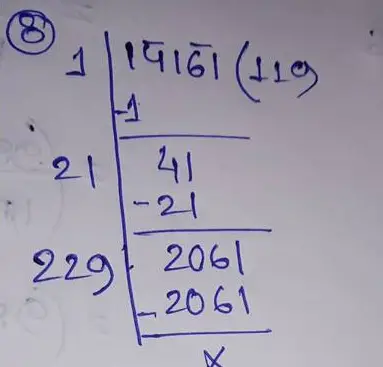 8
1 | 14161 (119
-1
21 | 41
-21
229 | 2061
-2061
×